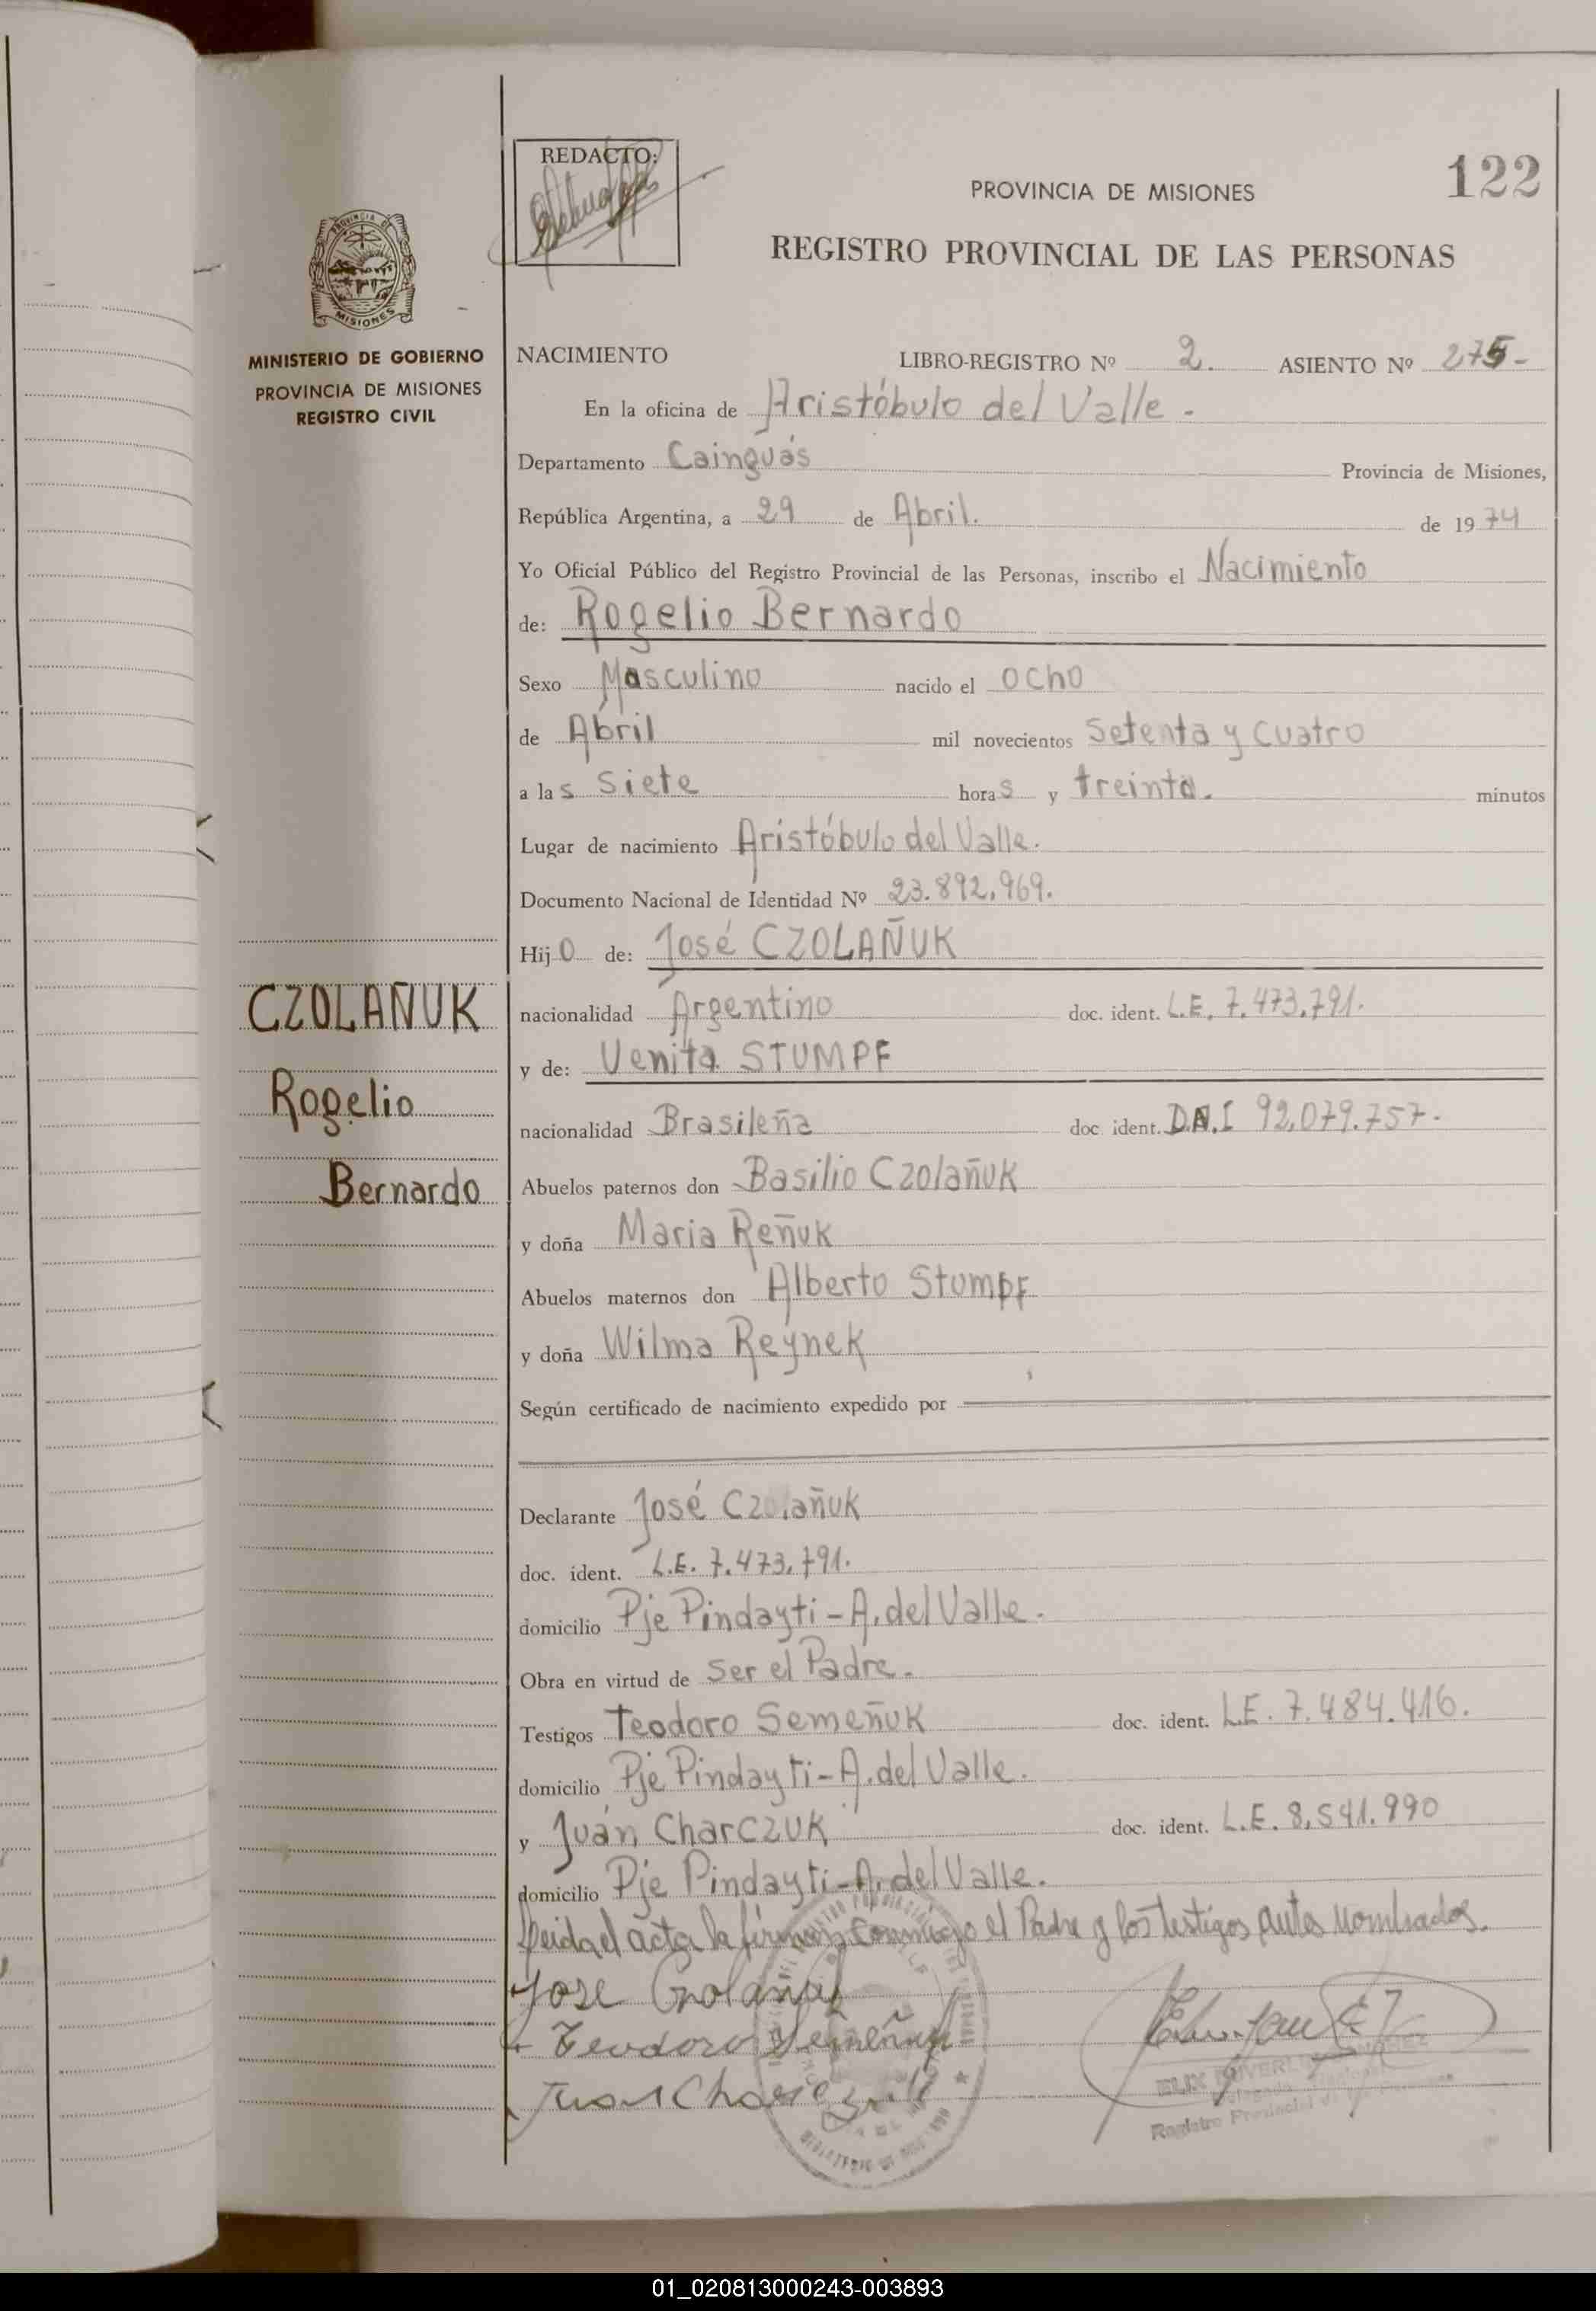 REDACTO:
122
PROVINCIA DE MISIONES
REGISTRO PROVINCIAL DE LAS PERSONAS
PROVINCIA DE
MISIONES
MINISTERIO DE GOBIERNO
PROVINCIA DE MISIONES
REGISTRO CIVIL
CZOLAÑUK
Rogelio
Bernardo
NACIMIENTO LIBRO-REGISTRO Nº 2. ASIENTO Nº 275-
En la oficina de Aristóbulo del Valle.
Departamento Cainguás Provincia de Misiones,
República Argentina, a 29 de Abril. de 1974
Yo Oficial Público del Registro Provincial de las Personas, inscribo el Nacimiento
de: Rogelio Bernardo
Sexo Masculino nacido el ocho
de Abril mil novecientos setenta y cuatro
a las siete horas y treinta. minutos
Lugar de nacimiento Aristóbulo del Valle.
Documento Nacional de Identidad Nº 23.892.969.
Hijo de: José CZOLAÑUK
nacionalidad Argentino doc. ident. L.E. 7.473.791.
y de: Venita STUMPF
nacionalidad Brasileña doc. ident. D.N.I 92.079.757.
Abuelos paternos don Basilio Czolañuk
y doña Maria Reñuk
Abuelos maternos don Alberto Stumpf
y doña Wilma Reynek
Según certificado de nacimiento expedido por
Declarante José Czolañuk
doc. ident. L.E. 7.473.791.
domicilio Pje Pindayti-A. del Valle.
Obra en virtud de ser el Padre.
Testigos Teodoro Semeñuk doc. ident. L.E. 7.484.416.
domicilio Pje Pindayti-A. del Valle.
y Juan Charczuk doc. ident. L.E. 8.541.990
domicilio Pje Pindayti-A. del Valle.
Leida el acta la firman conmigo el Padre y los testigos antes nombrados.
Jose Czolañuk
Teodoro Semeñuk
Juan Charczuk
Registro Provincial de
01_020813000243-003893